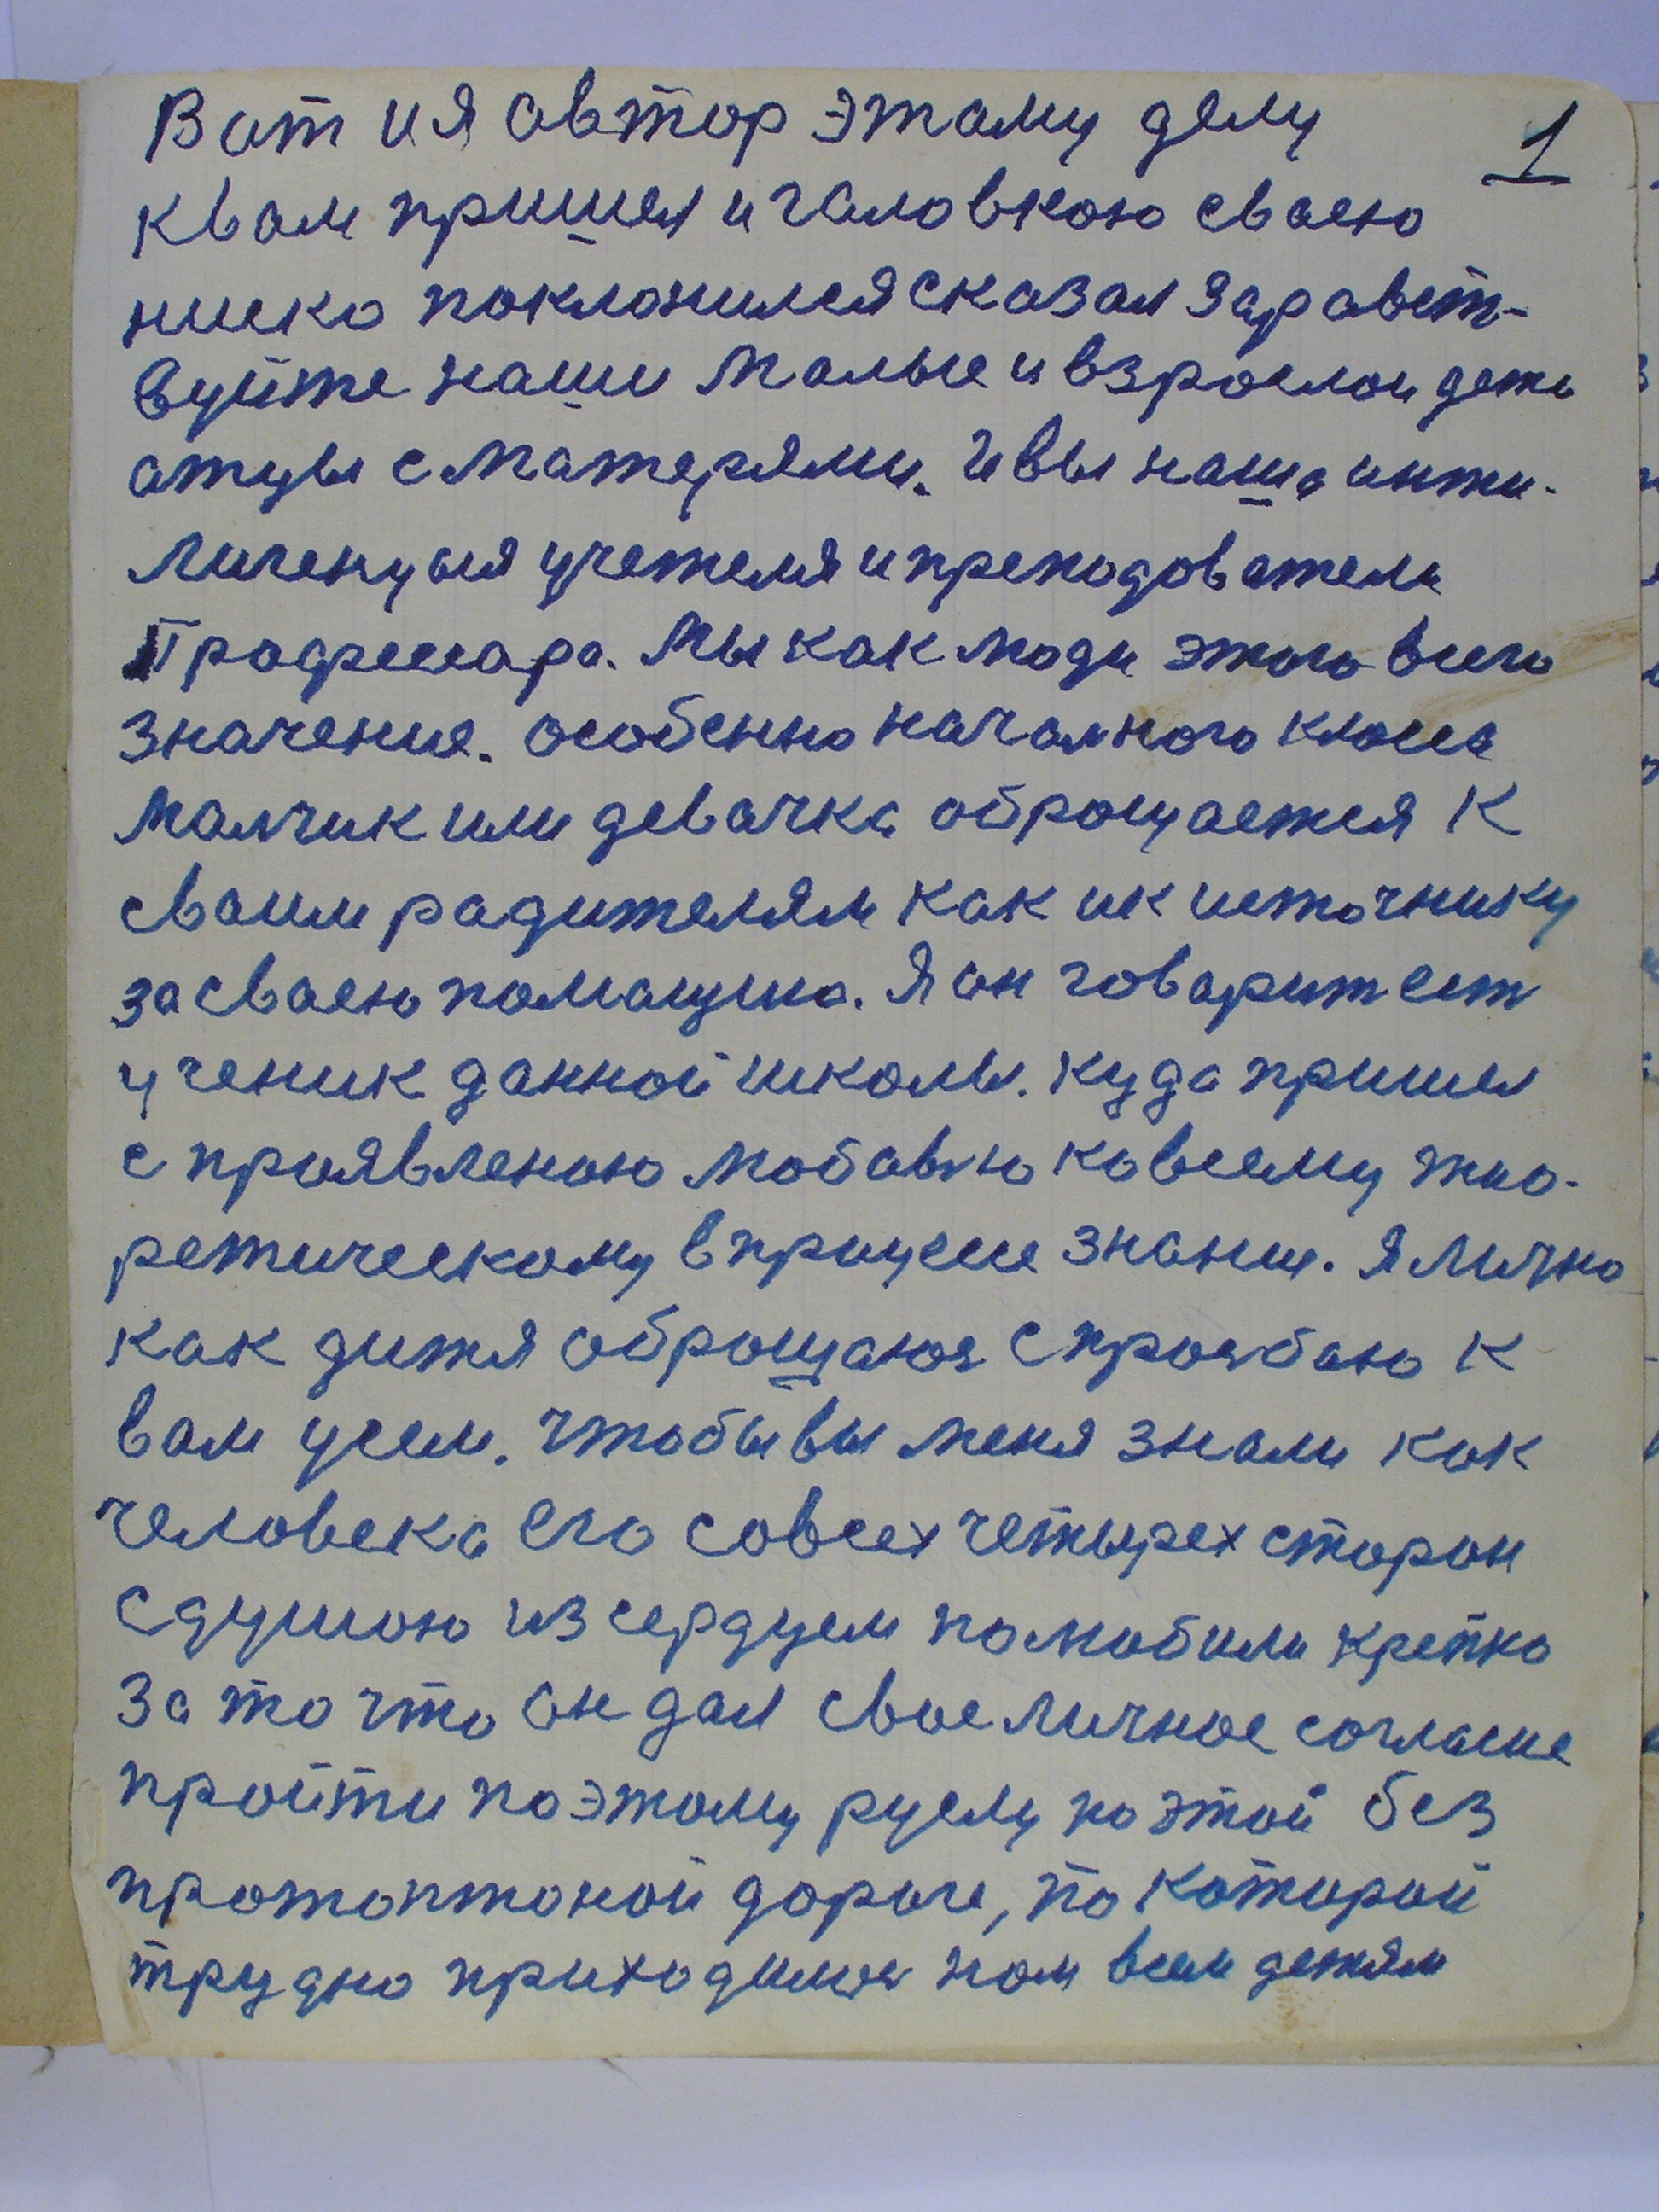 Вот и я автор этому делу 1
к вам пришел и галовкою сваею
ниско поклонился сказал здравст-
вуйте наши малые и взрослои дети
атцы с матерями. и вы наша инти-
лигенцыя учетеля и преподователи
Професара. Мы как люди этого всего
значение. особенно началного класса
малчик или девачка оброщается к
сваим радителям как ик источнику
за сваею помащию. Я он говарит ест
ученик данной школы. куда пришел
с проявленою любовю ко всему тео-
ретическому в процесе знании. Я лично
как дитя оброщаюс с прозбаю к
вам усем. чтобы вы меня знали как
человека его со всех четырех сторон
с душою из сердцем полюбили крепко
За то что он дал свое личное согласие
пройти по этому руслу по этой без
протоптоной дороге, по которой
трудно приходилос нам всем детям